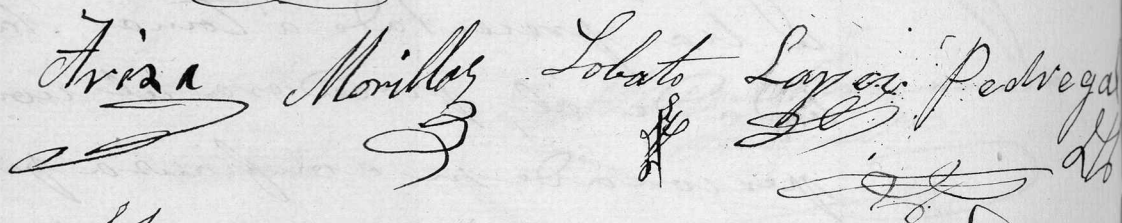 Ariza Morillas Lobato Lopez Pedregal